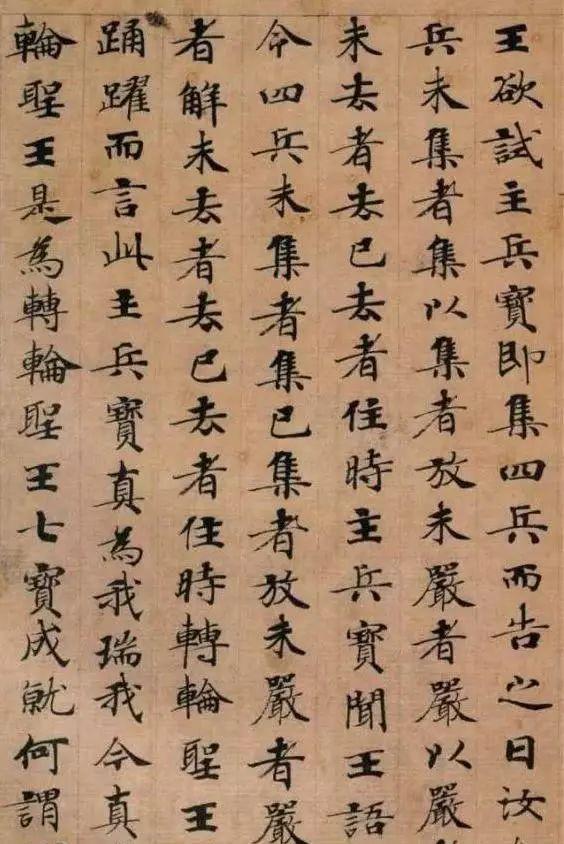 王欲試主兵寶即集四兵而告之曰汝
兵未集者集以集者放未嚴者嚴以嚴
未去者去已去者住時主兵寶聞王語
令四兵未集者集已集者放未嚴者嚴
者解未去者去已去者住時轉輪聖王
踊躍而言此主兵寶真為我瑞我今真
輪聖王是為轉輪聖王七寶成就何謂